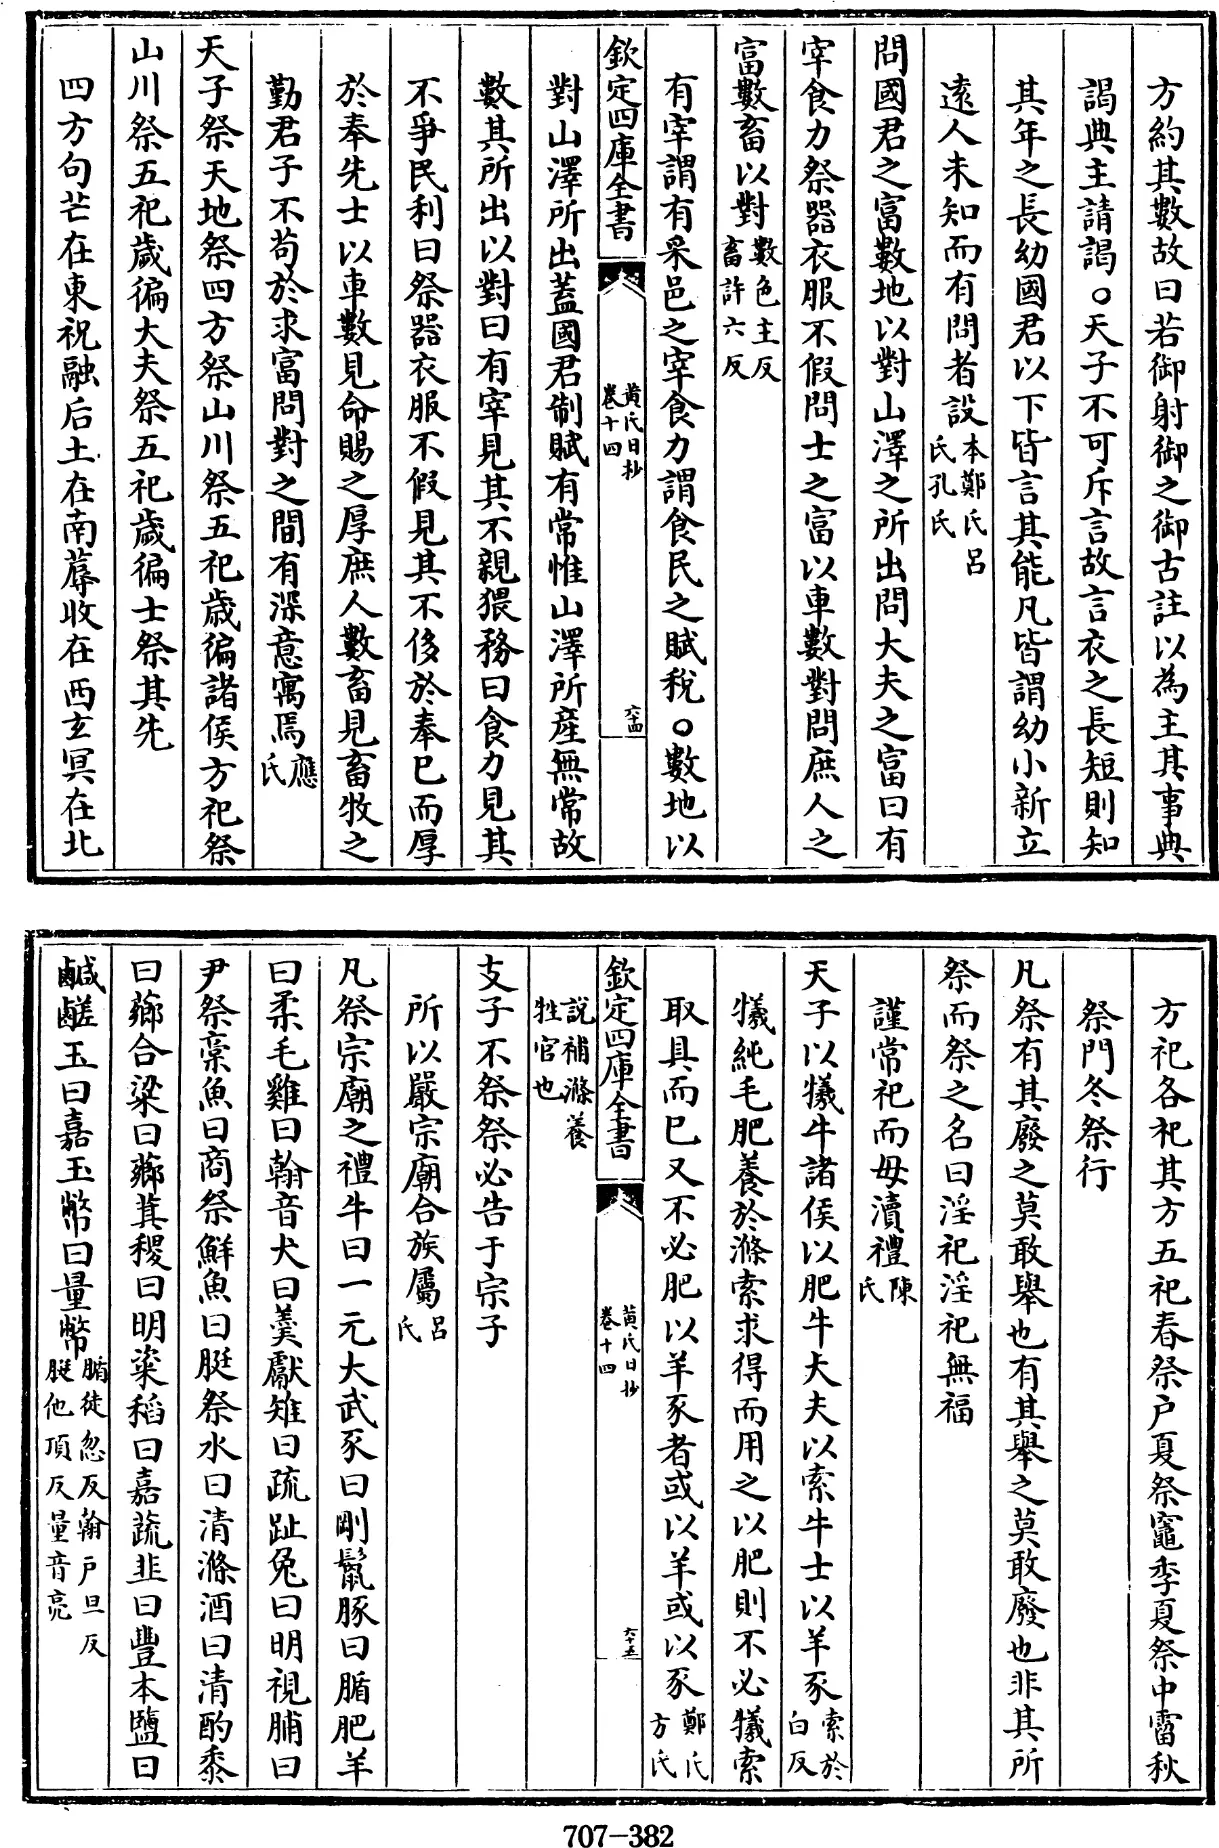 方約其數故曰若御射御之御古註以為主其事典
謁典主請謁○天子不可斥言故言衣之長短則知
其年之長幼國君以下皆言其能凡皆謂幼小新立
遠人未知而有問者設本鄭氏呂氏孔氏
問國君之富數地以對山澤之所出問大夫之富曰有
宰食力祭器衣服不假問士之富以車數對問庶人之
富數畜以對數色主反畜許六反
有宰謂有采邑之宰食力謂食民之賦稅○數地以
欽定四庫全書 黃氏日抄卷十四 六十四
對山澤所出蓋國君制賦有常惟山澤所産無常故
數其所出以對曰有宰見其不親猥務曰食力見其
不爭民利曰祭器衣服不假見其不侈於奉己而厚
於奉先士以車數見命賜之厚庶人數畜見畜牧之
勤君子不苟於求富問對之間有深意寓焉應氏
天子祭天地祭四方祭山川祭五祀歲徧諸侯方祀祭
山川祭五祀歲徧大夫祭五祀歲徧士祭其先
四方句芒在東祝融后土在南蓐收在西玄冥在北
方祀各祀其方五祀春祭户夏祭竈季夏祭中霤秋
祭門冬祭行
凡祭有其廢之莫敢舉也有其舉之莫敢廢也非其所
祭而祭之名曰淫祀淫祀無福
謹常祀而毋瀆禮陳氏
天子以犧牛諸侯以肥牛大夫以索牛士以羊豕索於白反
犧純毛肥養於滌索求得而用之以肥則不必犧索
取具而已又不必肥以羊豕者或以羊或以豕鄭氏方氏
欽定四庫全書 黃氏日抄卷十四 六十五
說補滌養牲官也
支子不祭祭必告于宗子
所以嚴宗廟合族屬呂氏
凡祭宗廟之禮牛曰一元大武豕曰剛鬛豚曰腯肥羊
曰柔毛雞曰翰音犬曰羹獻雉曰疏趾兔曰明視脯曰
尹祭槀魚曰商祭鮮魚曰脡祭水曰清滌酒曰清酌黍
曰薌合粱曰薌萁稷曰明粢稻曰嘉蔬韭曰豐本鹽曰
鹹鹺玉曰嘉玉幣曰量幣腯徒忽反翰戶旦反脡他頂反量音亮
707-382